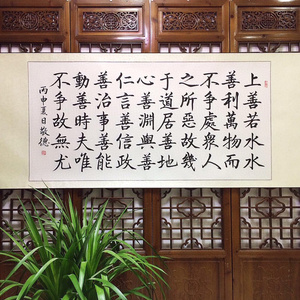 上善若水水
善利萬物而
不争處衆人
之所惡故幾
于道居善地
心善淵與善
仁言善信政
善治事善能
動善時夫唯
不争故無尤
丙申夏日敬